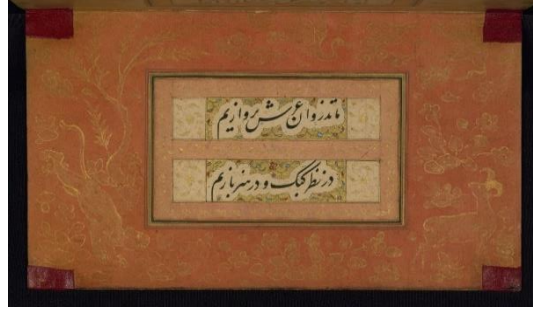 ما تذروان عرش پروازیم
در نظر کبک و در هنر بازیم